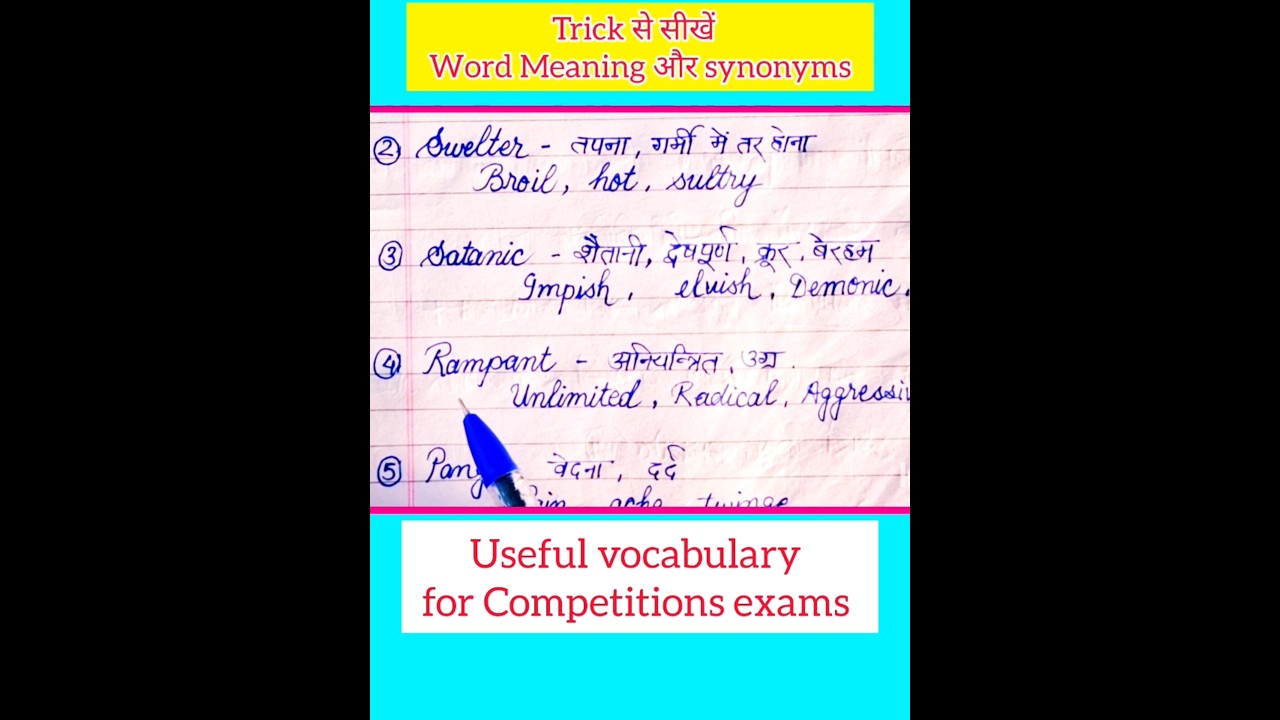 Trick से सीखें
Word Meaning और synonyms
② Swelter - तपना, गर्मी में तर होना
Broil, hot, sultry
③ Satanic - शैतानी, द्वेषपूर्ण, क्रूर, बेरहम
Impish, elvish, Demonic.
④ Rampant - अनियन्त्रित, उग्र.
Unlimited, Radical, Aggressiv
⑤ Pang वेदना, दर्द
ache twinge
Useful vocabulary
for Competitions exams